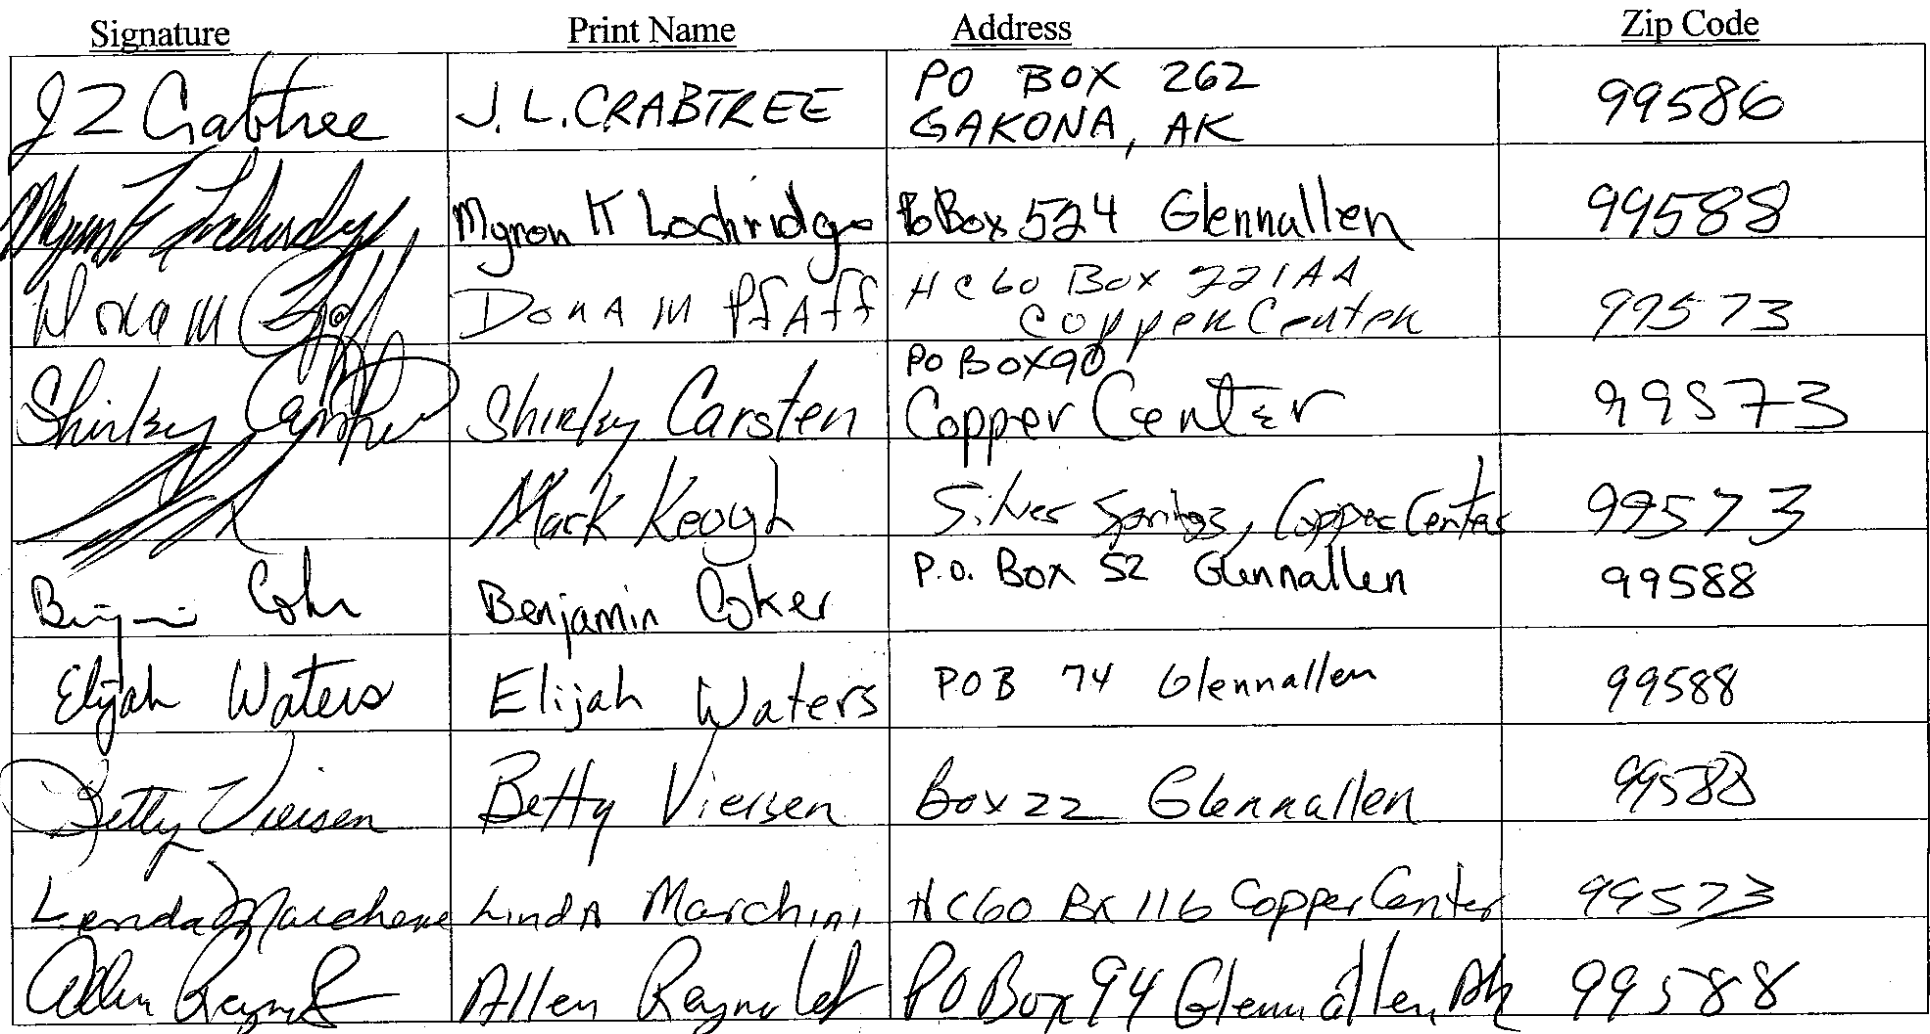 Signature Print Name Address Zip Code
J L Crabtree J. L. CRABTREE PO BOX 262 99586
GAKONA, AK
Myron K Lochridge Myron K Lochridge PoBox 524 Glennallen 99588
Dona M Pfaff Dona M Pfaff HC60 Box 221AA 99573
Copper Center
Shirley Carsten Shirley Carsten PO Box 90 99573
Copper Center
Mark Keogh Silver Springs, Copper Center 99573
Benjamin Coker Benjamin Coker P.O. Box 52 Glennallen 99588
Elijah Waters Elijah Waters POB 74 Glennallen 99588
Betty Viersen Betty Viersen Box 22 Glennallen 99588
Linda Marchini Linda Marchini HC60 Bx 116 Copper Center 99573
Allen Allen PO Box 94 Glennallen, Ak 99588